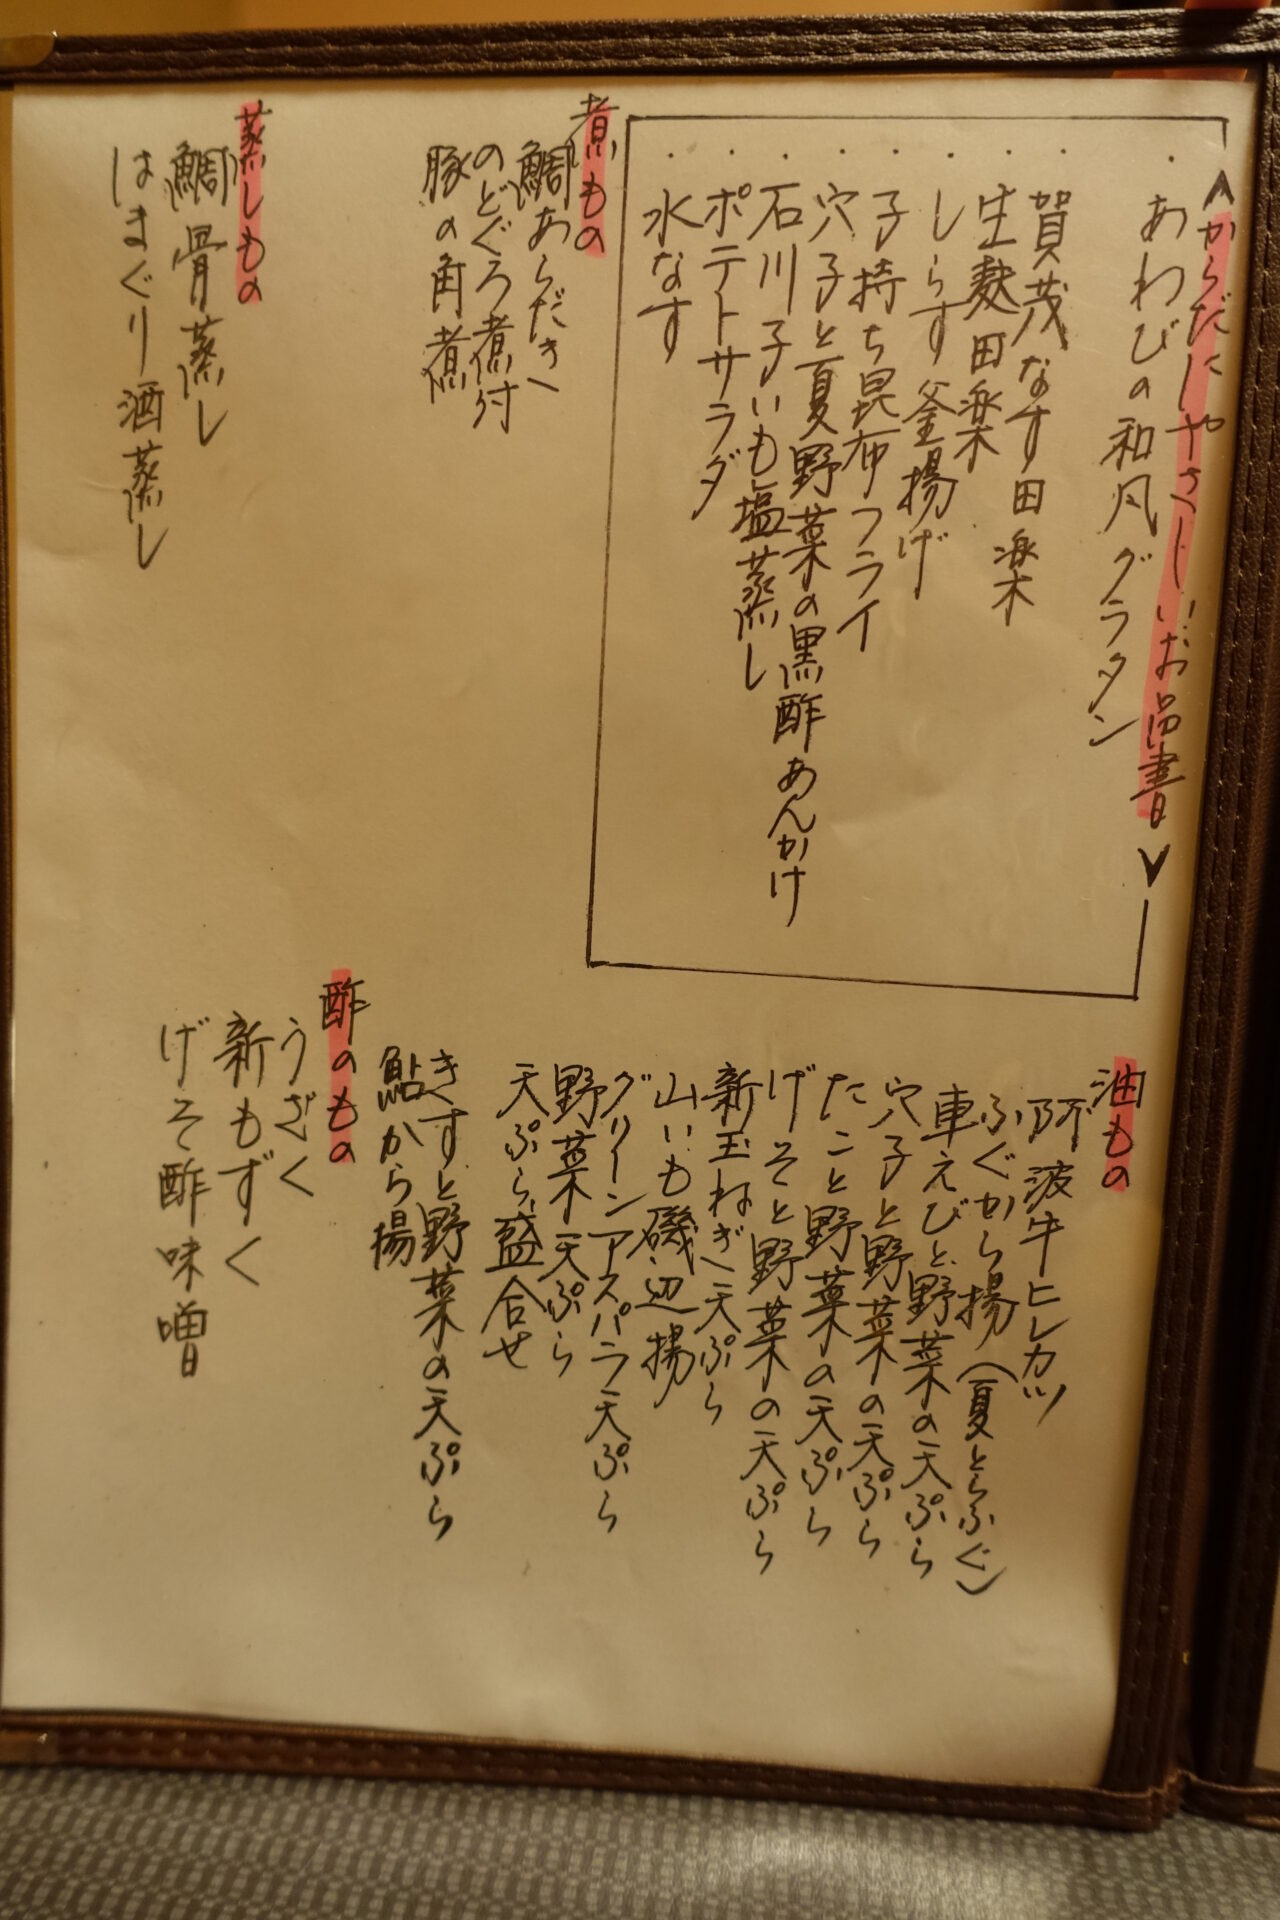 <からだにやさしいお品書>
・あわびの和風グラタン
・賀茂なす田楽
・生麩田楽
・しらす釜揚げ
・子持ち昆布フライ
・穴子と夏野菜の黒酢あんかけ
・石川子いも塩蒸し
・ポテトサラダ
・水なす
煮もの
鯛あらだき
のどぐろ煮付
豚の角煮
蒸しもの
鯛骨蒸し
はまぐり酒蒸し
油もの
阿波牛ヒレカツ
ふぐから揚(夏とらふぐ)
車えびと野菜の天ぷら
穴子と野菜の天ぷら
たこと野菜の天ぷら
げそと野菜の天ぷら
新玉ねぎ天ぷら
山いも磯辺揚
グリーンアスパラ天ぷら
野菜天ぷら
天ぷら盛合せ
きすと野菜の天ぷら
鮎から揚
酢のもの
うざく
新もずく
げそ酢味噌